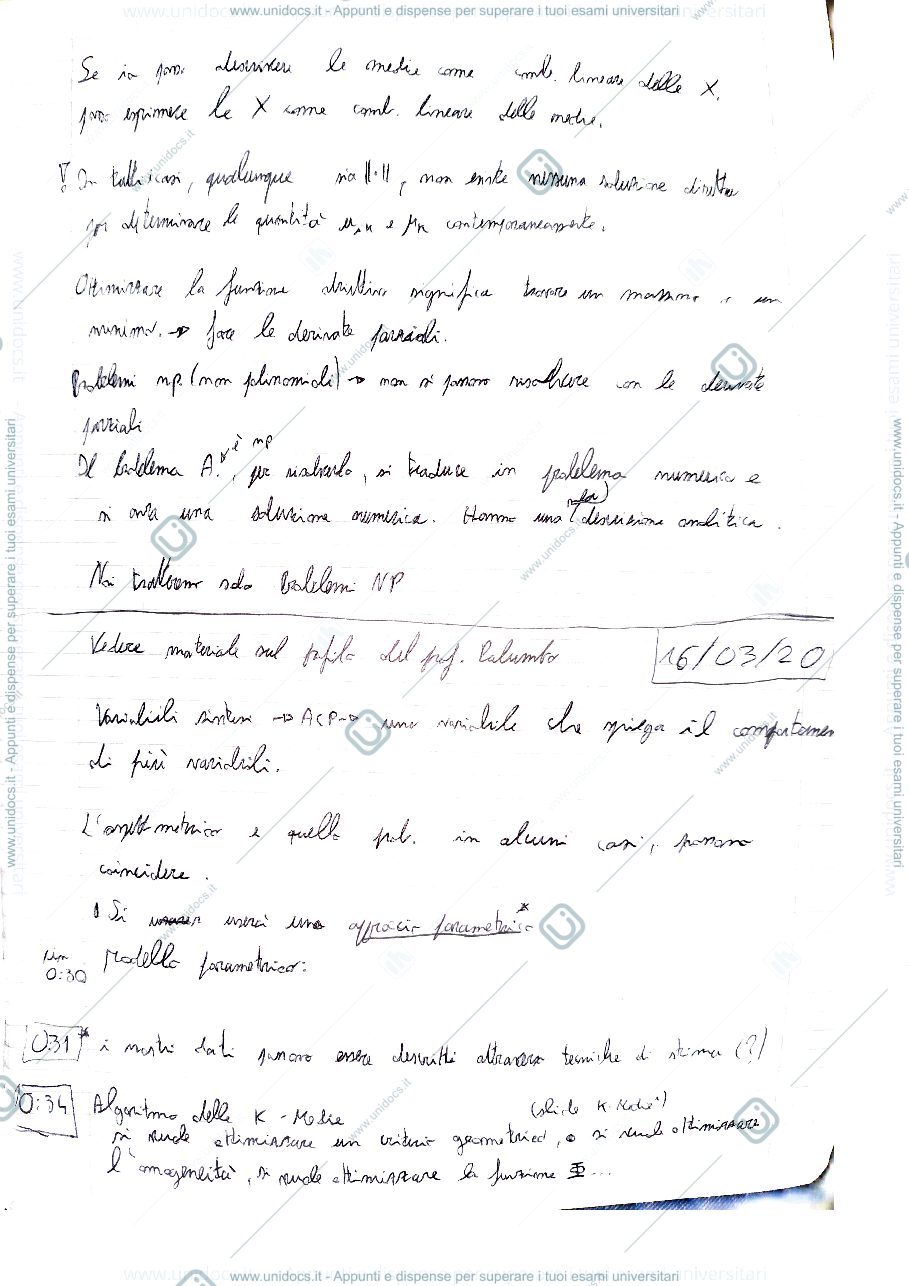 www.unidocs.it - Appunti e dispense per superare i tuoi esami universitari
Se io posso descrivere le medie come comb. lineare delle X,
posso esprimere le X come comb. lineare delle medie.
In tutti i casi, qualunque sia ||·||, non esiste nessuna soluzione diretta
per determinare le quantità e μk contemporaneamente.
Ottimizzare la funzione obiettivo significa trovare un massimo o un
minimo. → fare le derivate parziali.
Problemi np (non polinomiali) → non si possono risolvere con le derivate
parziali
è np
Il Problema A. , per risolverlo, si traduce in problema numerico e
si avrà una soluzione numerica. Hanno una descrizione analitica.
Noi tratteremo solo Problemi NP
Vedere materiale sul profilo del prof. Palumbo
16/03/20
Variabili sintesi → ACP → una variabile che spiega il comportamen
di più variabili.
L' metrico e quello prob. in alcuni casi, possono
coincidere.
Si userà uno approccio parametrico*
Min
0:30
Modello parametrico:
0:31* i nostri dati possono essere descritti attraverso tecniche di stima (?)
0:34 Algoritmo delle K-Medie (slide K-Medie)
si vuole ottimizzare un criterio geometrico, o si vuole ottimizzare
l'omogeneità, si vuole ottimizzare la funzione Φ ...
www.unidocs.it - Appunti e dispense per superare i tuoi esami universitari